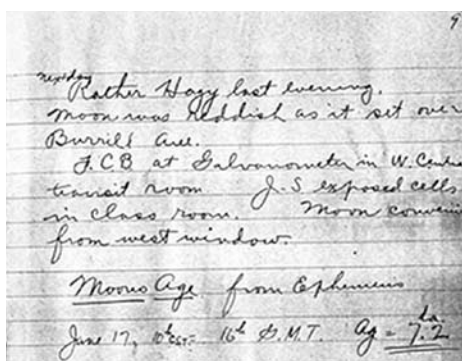 9
next day
Rather Hazy last evening.
Moon was Reddish as it set over
Burrill Ave.
F.C.B. at Galvanometer in W. Central
transit room J.S exposed cells
in class room. Moon conveni
from west window.
Moons Age from Ephemeris
June 17, 10h CST = 16h G.M.T. Ag = 7.2 da.